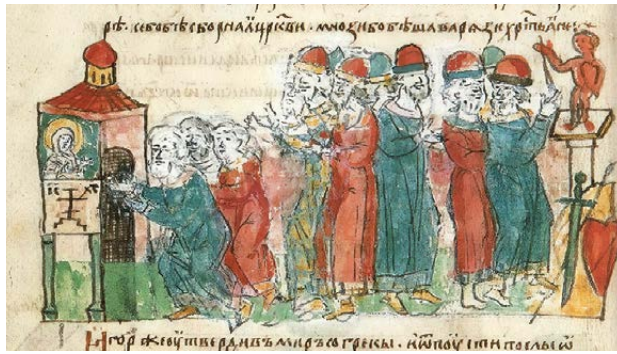 рѣ. себобѣ сборнаꙗ црк҃ви. мнозибобѣша варѧзи хрⷭ҇тьꙗне
Игорь же оутвердивъ миръ со греки. и ѿпоусти послы ѿ